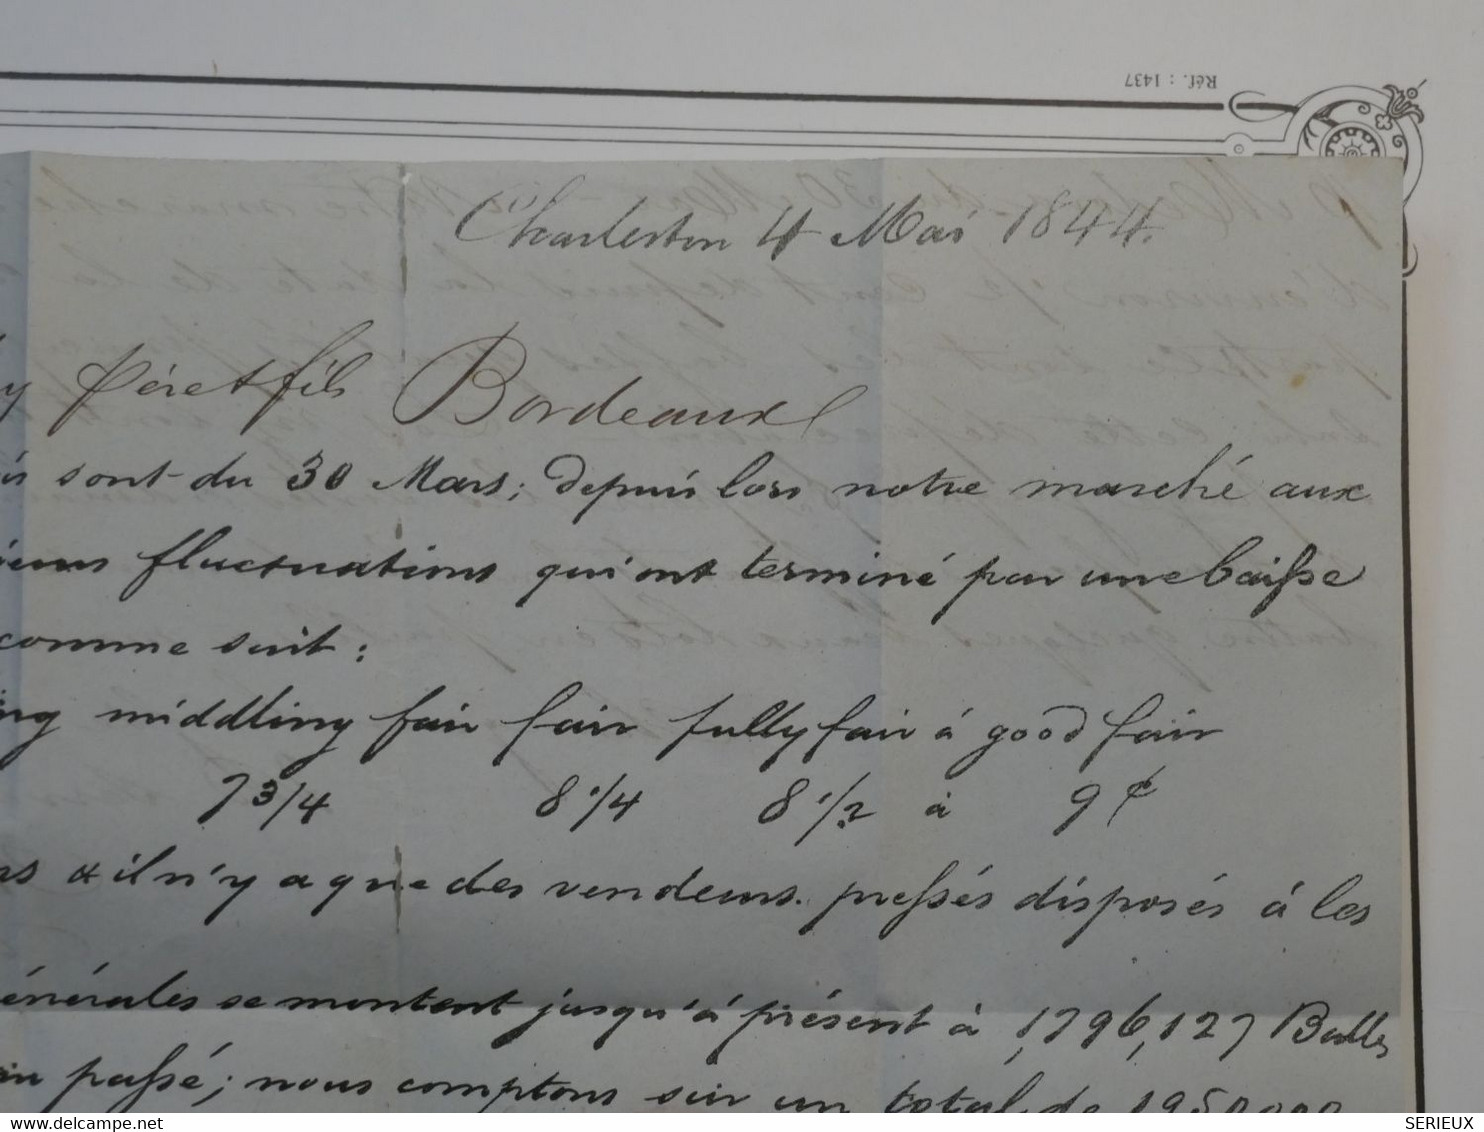 Réf. : 1437
Charleston 4 Mai 1844.
y père et fils Bordeaux
sont du 30 Mars; depuis lors notre marché aux
fluctuations qui ont terminé par une baisse
comme suit:
middling fair fair fully fair à good fair
7 3/4 8 1/4 8 1/2 à 9 ¢
& il n'y a que des vendeurs pressés disposés à les
générales se montent jusqu'à présent à 1,796,127 Balles
passé; nous comptons sur un total de 1950000
SERIEUX